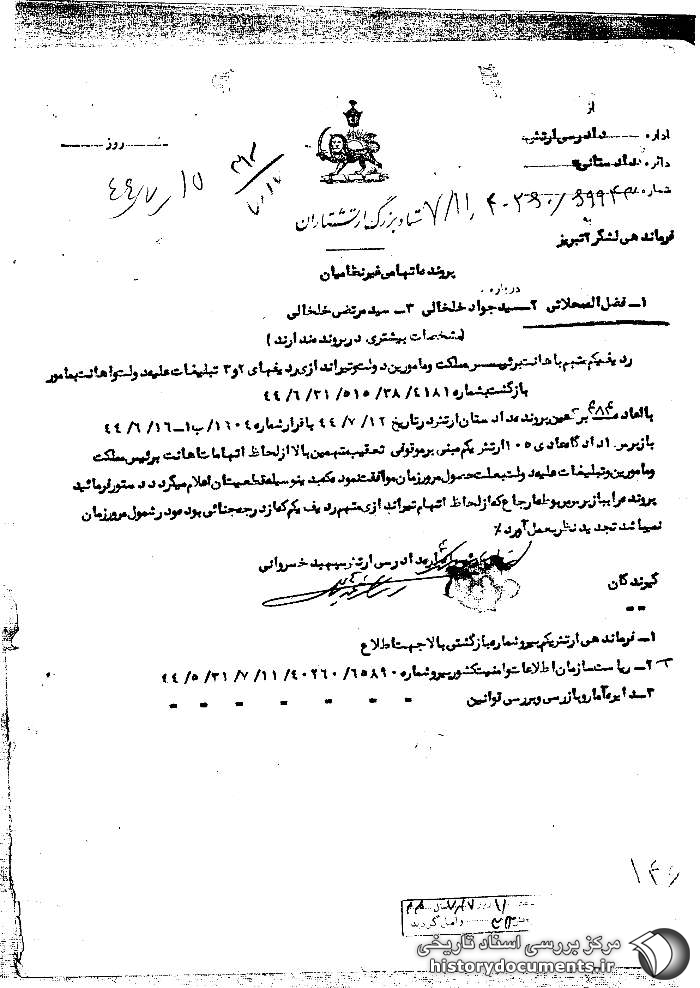 از
اداره دادرسی ارتش
دائره دادستانی
روز
شماره
۱۵
ستاد بزرگ ارتشتاران
به
فرماندهی لشگر ۲ تبریز
پرونده اتهامی غیرنظامیان
درباره
۱ـ فضل اله محلاتی ۲ـ سید جواد خلخالی ۳ـ سید مرتضی خلخالی
(مشخصات بیشتری در پرونده ندارند)
ردیف یکم متهم باهانت برئیس مملکت و مامورین دولت و تیراندازی ردیفهای ۲ و ۳ تبلیغات علیه دولت و اهانت بمامور
بازگشت بشماره ۴۱۸۱/ ۳۸/ ۵۱۵/ ۳۱/ ۶/ ۴۴
برگ عین پرونده دادستان ارتش در تاریخ ۱۲/ ۷/ ۴۴ با قرار شماره ۱۶۰۴/ ب ۱ــ ۱۶/ ۶/ ۴۴
بازپرس ۱ دادگاه عادی ۱۰۵ ارتش یکم مبنی بر موقوفی تعقیب متهمین بالا از لحاظ اتهامات اهانت برئیس مملکت
و مامورین و تبلیغات علیه دولت بعلت حصول مرور زمان موافقت نمود که بدینوسیله قطعیت آن اعلام میگردد دستور فرمائید
پرونده را ببازپرس مربوطه ارجاع که از لحاظ اتهام تیراندازی متهم ردیف یکم که از درجه جنائی بوده و در شمول مرور زمان
نمیباشد تجدید نظر بعمل آورد٪
دادرسی ارتش سپهبد خسروانی
گیرندگان
۱ـ فرماندهی ارتش یکم پیرو شماره بازگشتی بالا جهت اطلاع
۲ـ ریاست سازمان اطلاعات و امنیت کشور پیرو شماره ۶۵۸۹۰/ ۴۰۲۶۰/ ۱۱/ ۷/ ۳۱/ ۵/ ۴۴
۳ـ دایره آمار و بازرسی و بررسی قوانین
۱۴۶
وارد گردید
مرکز بررسی اسناد تاریخی
historydocuments.ir